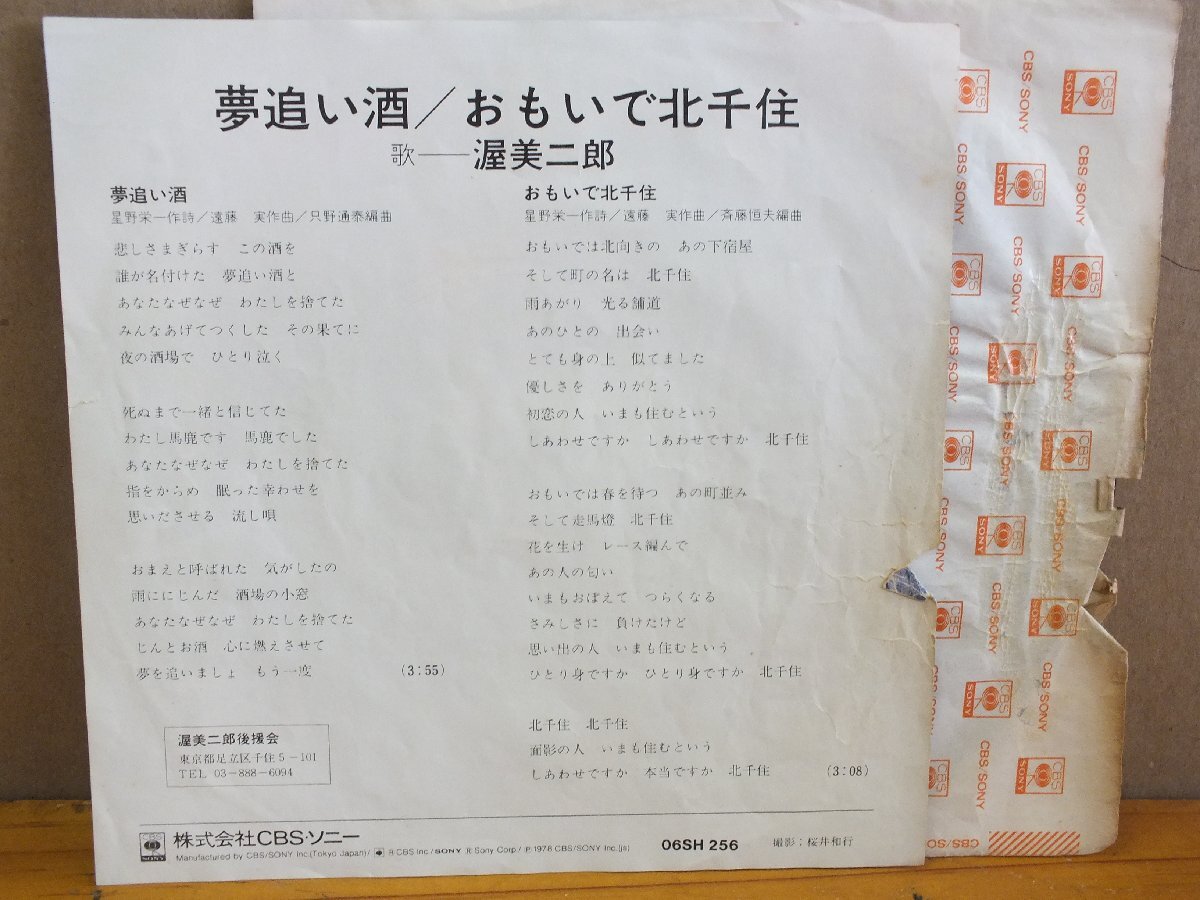 夢追い酒／おもいで北千住
歌——渥美二郎
夢追い酒
星野栄一作詩／遠藤　実作曲／只野通泰編曲
悲しさまぎらす　この酒を
誰が名付けた　夢追い酒と
あなたなぜなぜ　わたしを捨てた
みんなあげてつくした　その果てに
夜の酒場で　ひとり泣く
死ぬまで一緒と信じてた
わたし馬鹿です　馬鹿でした
あなたなぜなぜ　わたしを捨てた
指をからめ　眠った幸わせを
思いださせる　流し唄
おまえと呼ばれた　気がしたの
雨ににじんだ　酒場の小窓
あなたなぜなぜ　わたしを捨てた
じんとお酒　心に燃えさせて
夢を追いましょ　もう一度　(3:55)
渥美二郎後援会
東京都足立区千住5－101
TEL 03-888-6094
おもいで北千住
星野栄一作詩／遠藤　実作曲／斉藤恒夫編曲
おもいでは北向きの　あの下宿屋
そして町の名は　北千住
雨あがり　光る舗道
あのひとの　出会い
とても身の上　似てました
優しさを　ありがとう
初恋の人　いまも住むという
しあわせですか　しあわせですか　北千住
おもいでは春を待つ　あの町並み
そして走馬燈　北千住
花を生け　レース編んで
あの人の匂い
いまもおぼえて　つらくなる
さみしさに　負けたけど
思い出の人　いまも住むという
ひとり身ですか　ひとり身ですか　北千住
北千住　北千住
面影の人　いまも住むという
しあわせですか　本当ですか　北千住　(3:08)
CBS SONY
株式会社CBS・ソニー
Manufactured by CBS/SONY Inc.(Tokyo Japan)/ R CBS Inc/SONY R Sony Corp/ P 1978 CBS/SONY Inc.(js)
06SH 256
撮影；桜井和行
CBS/SONY
CBS SONY
CBS/SONY
CBS SONY
CBS/SONY
CBS SONY
CBS/SONY
CBS SONY
CBS/SONY
CBS SONY
CBS/SONY
CBS SONY
CBS/SONY